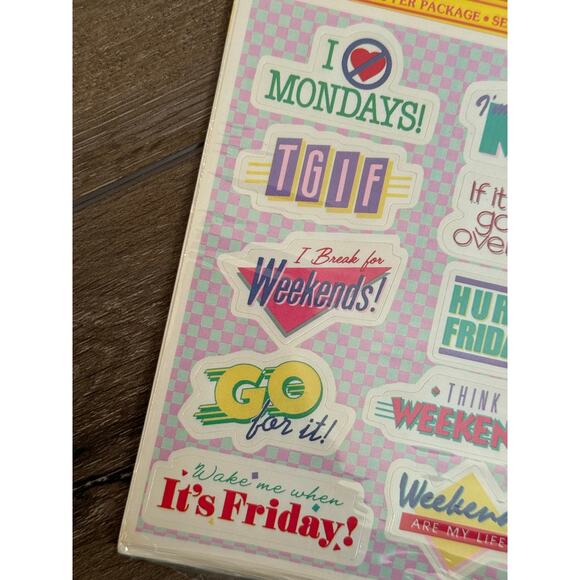 PACKAGE • SE
I
MONDAYS!
TGIF
I Break for
Weekends!
GO
for it!
Wake me when
It's Friday!
I'm
If it
go
over
HUR
FRIDA
THINK
WEEKEN
Weeken
ARE MY LIFE